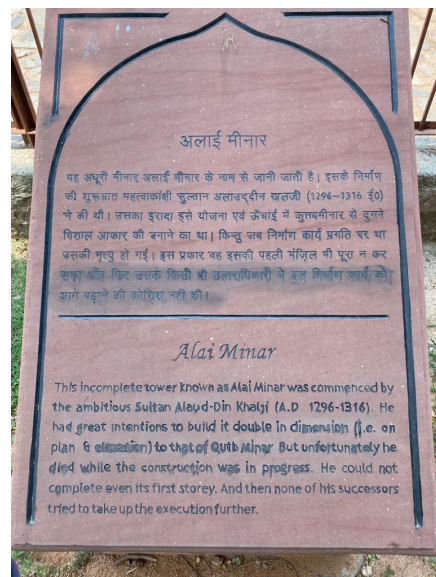 अलाई मीनार
यह अधूरी मीनार अलाई मीनार के नाम से जानी जाती है। इसके निर्माण
की शुरूआत महत्वाकांक्षी सुल्तान अलाउद्दीन खलजी (1296–1316 ई0)
ने की थी। उसका इरादा इसे योजना एवं ऊँचाई में कुतुबमीनार से दुगने
विशाल आकार की बनाने का था। किन्तु जब निर्माण कार्य प्रगति पर था
उसकी मृत्यु हो गई। इस प्रकार वह इसकी पहली मंज़िल भी पूरा न कर
सका और फिर उसके किसी भी उत्तराधिकारी ने इस निर्माण कार्य को
आगे बढ़ाने की कोशिश नहीं की।
Alai Minar
This incomplete tower known as Alai Minar was commenced by
the ambitious Sultan Alaud-Din Khalji (A.D 1296-1316). He
had great intentions to build it double in dimension (i.e. on
plan & elevation) to that of Qutb Minar But unfortunately he
died while the construction was in progress. He could not
complete even its first storey. And then none of his successors
tried to take up the execution further.